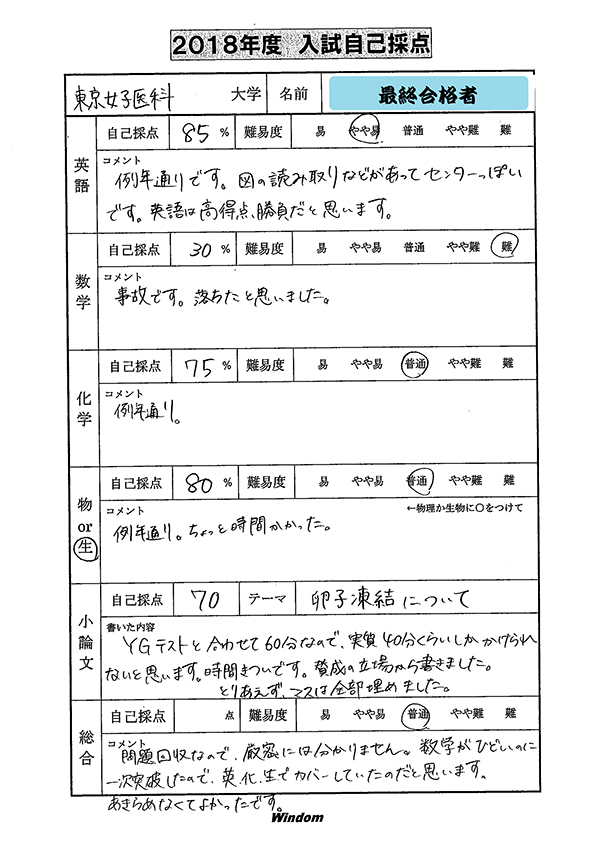 2018年度 入試自己採点
東京女子医科 大学 名前 最終合格者
英語 自己採点 85 % 難易度 易 やや易 普通 やや難 難
コメント
例年通りです。図の読み取りなどがあってセンターっぽい
です。英語は高得点勝負だと思います。
数学 自己採点 30 % 難易度 易 やや易 普通 やや難 難
コメント
事故です。落ちたと思いました。
化学 自己採点 75 % 難易度 易 やや易 普通 やや難 難
コメント
例年通り。
物or生 自己採点 80 % 難易度 易 やや易 普通 やや難 難
コメント ←物理か生物に○をつけて
例年通り。ちょっと時間かかった。
小論文 自己採点 70 テーマ 卵子凍結について
書いた内容
YGテストと合わせて60分なので、実質40分くらいしかかけられ
ないと思います。時間きついです。賛成の立場から書きました。
とりあえず、マスは全部埋めました。
総合 自己採点 点 難易度 易 やや易 普通 やや難 難
コメント
問題回収なので、厳密には分かりません。数学がひどいのに
一次突破したので、英、化、生でカバーしていたのだと思います。
あきらめなくてよかったです。
Windom